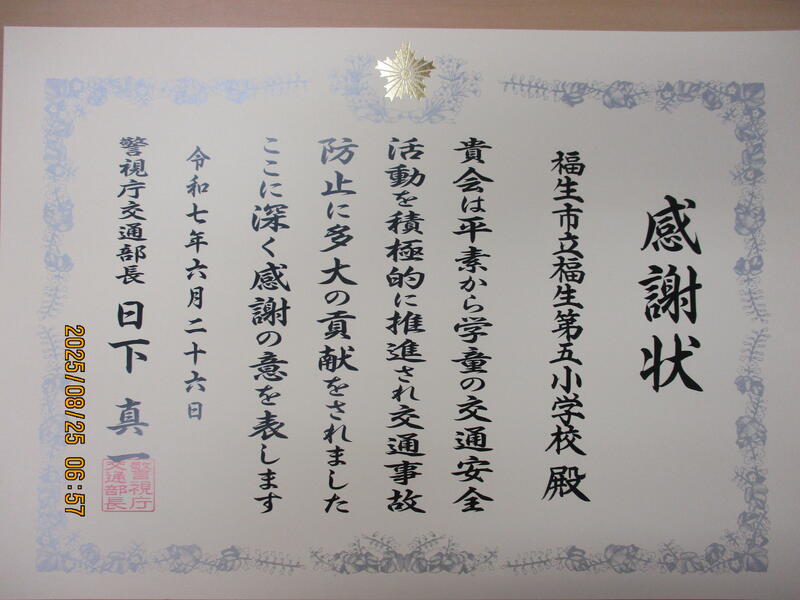 感謝状
福生市立福生第五小学校 殿
貴会は平素から学童の交通安全
活動を積極的に推進され交通事故
防止に多大の貢献をされました
ここに深く感謝の意を表します
令和七年六月二十六日
警視庁交通部長 日下 真一
警視庁
交通部長
2025/08/25 06:57